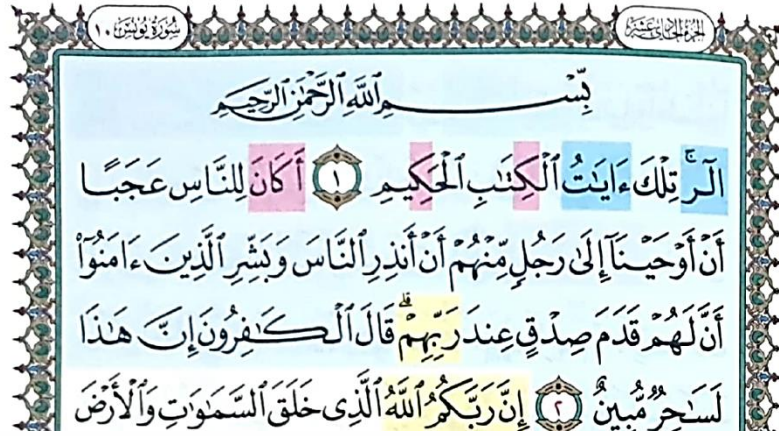 الجزء الحادي عشر
سورة يونس ١٠
بِسْمِ ٱللَّهِ ٱلرَّحْمَٰنِ ٱلرَّحِيمِ
الٓرۚ تِلْكَ ءَايَٰتُ ٱلْكِتَٰبِ ٱلْحَكِيمِ ١ أَكَانَ لِلنَّاسِ عَجَبًا
أَنْ أَوْحَيْنَآ إِلَىٰ رَجُلٍ مِّنْهُمْ أَنْ أَنذِرِ ٱلنَّاسَ وَبَشِّرِ ٱلَّذِينَ ءَامَنُوٓا۟
أَنَّ لَهُمْ قَدَمَ صِدْقٍ عِندَ رَبِّهِمْۗ قَالَ ٱلْكَٰفِرُونَ إِنَّ هَٰذَا
لَسَٰحِرٌ مُّبِينٌ ٢ إِنَّ رَبَّكُمُ ٱللَّهُ ٱلَّذِى خَلَقَ ٱلسَّمَٰوَٰتِ وَٱلْأَرْضَ